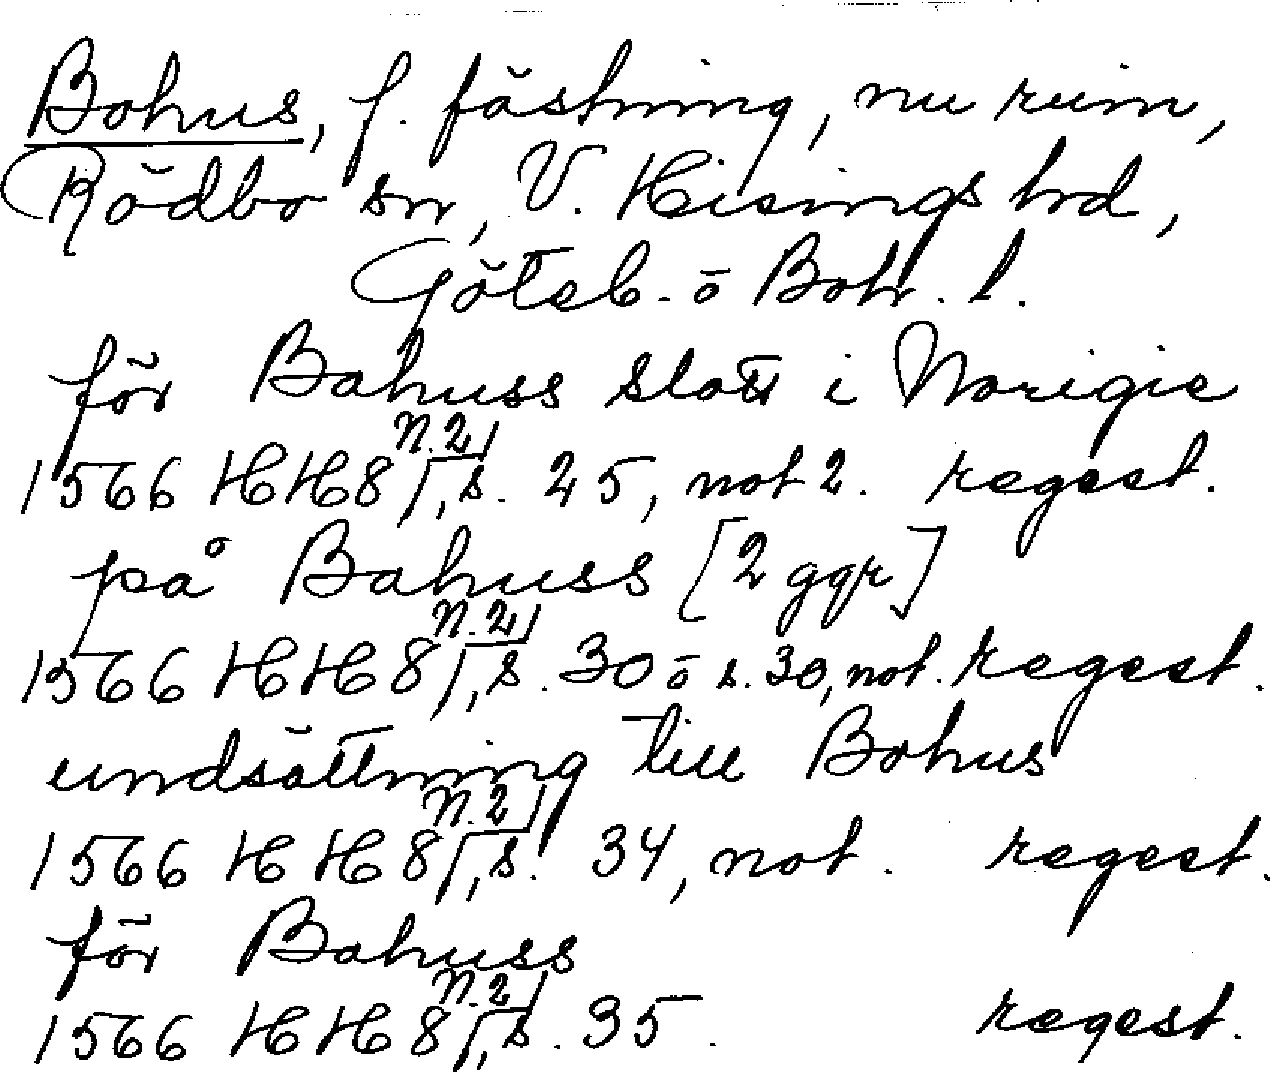 Bohus, f. fästning, nu ruin,
Rödbo sn, V. Hisings hrd,
Göteb. o Boh. l.
för Bahuss slott i Norigie
1566 HH 8 N. 2, s. 25, not 2. regest.
på Bahuss [2 ggr]
1566 HH 8 N. 2, s. 30 o s. 30, not. regest.
undsättning till Bohus
1566 HH 8 N. 2, s. 34, not. regest.
för Bahuss
1566 HH 8 N. 2, s. 35. regest.